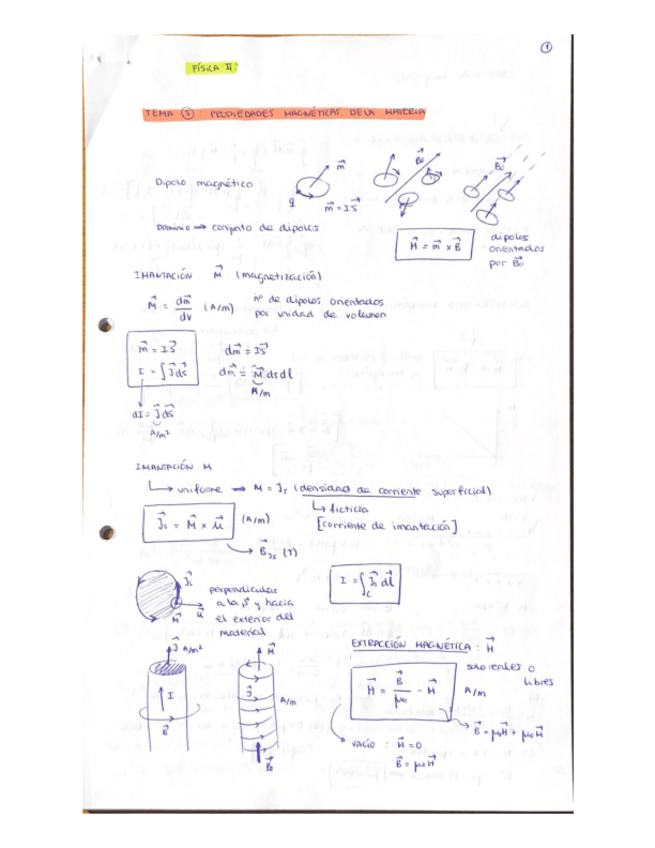 1
FÍSICA II:
TEMA 5: PROPIEDADES MAGNÉTICAS DE LA MATERIA
Dipolo magnético
q
m⃗
m⃗ = I S⃗
B⃗₀
B⃗₀
Dominio → conjunto de dipolos
M⃗ = m⃗ x B⃗
dipolos
orientados
por B⃗₀
IMANTACIÓN M⃗ (magnetización)
M⃗ = dm⃗ / dv (A/m)
nº de dipolos orientados
por unidad de volumen
m⃗ = I S⃗
I = ∫ J⃗ ds⃗
dm⃗ = I S⃗
dm⃗ = M⃗ ds dl
A/m
dI = J⃗ ds⃗
A/m²
IMANTACIÓN M
uniforme → M = Js (densidad de corriente superficial)
ficticia
[corriente de imantación]
J⃗s = M⃗ x u⃗ (A/m)
B⃗Js (T)
J⃗s
M⃗
u⃗
perpendicular
a la S y hacia
el exterior del
material
I = ∫c J⃗s dl⃗
J⃗ A/m²
I
B⃗
M⃗
J⃗
A/m
B⃗₀
EXTRACCIÓN MAGNÉTICA : H⃗
solo reales o
libres
H⃗ = B⃗ / μ₀ - M⃗
A/m
B⃗ = μ₀H⃗ + μ₀M⃗
vacío : M⃗ = 0
B⃗ = μ₀H⃗